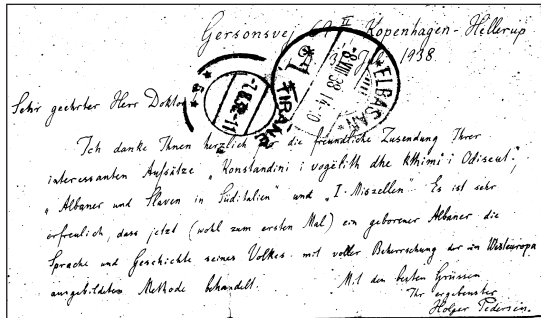 Gersonsvej 69 II Kopenhagen-Hellerup
1938.
Sehr geehrter Herr Doktor
Ich danke Ihnen herzlich für die freundliche Zusendung Ihrer
interessanten Aufsätze „Konstandini i vogëlith dhe Kthimi i Odiseut",
„Albaner und Slaven in Süditalien" und „I-Miszellen". Es ist sehr
erfreulich, dass jetzt (wohl zum ersten Mal) ein geborener Albaner die
Sprache und Geschichte seines Volkes mit voller Beherrschung der in Westeuropa
ausgebildeten Methode behandelt.
Mit den besten Grüssen
Ihr ergebenster
Holger Pedersen.
ELBASAN
-8 VIII 38 14-20
TIRANË
-7.8.38-11
* 5 *